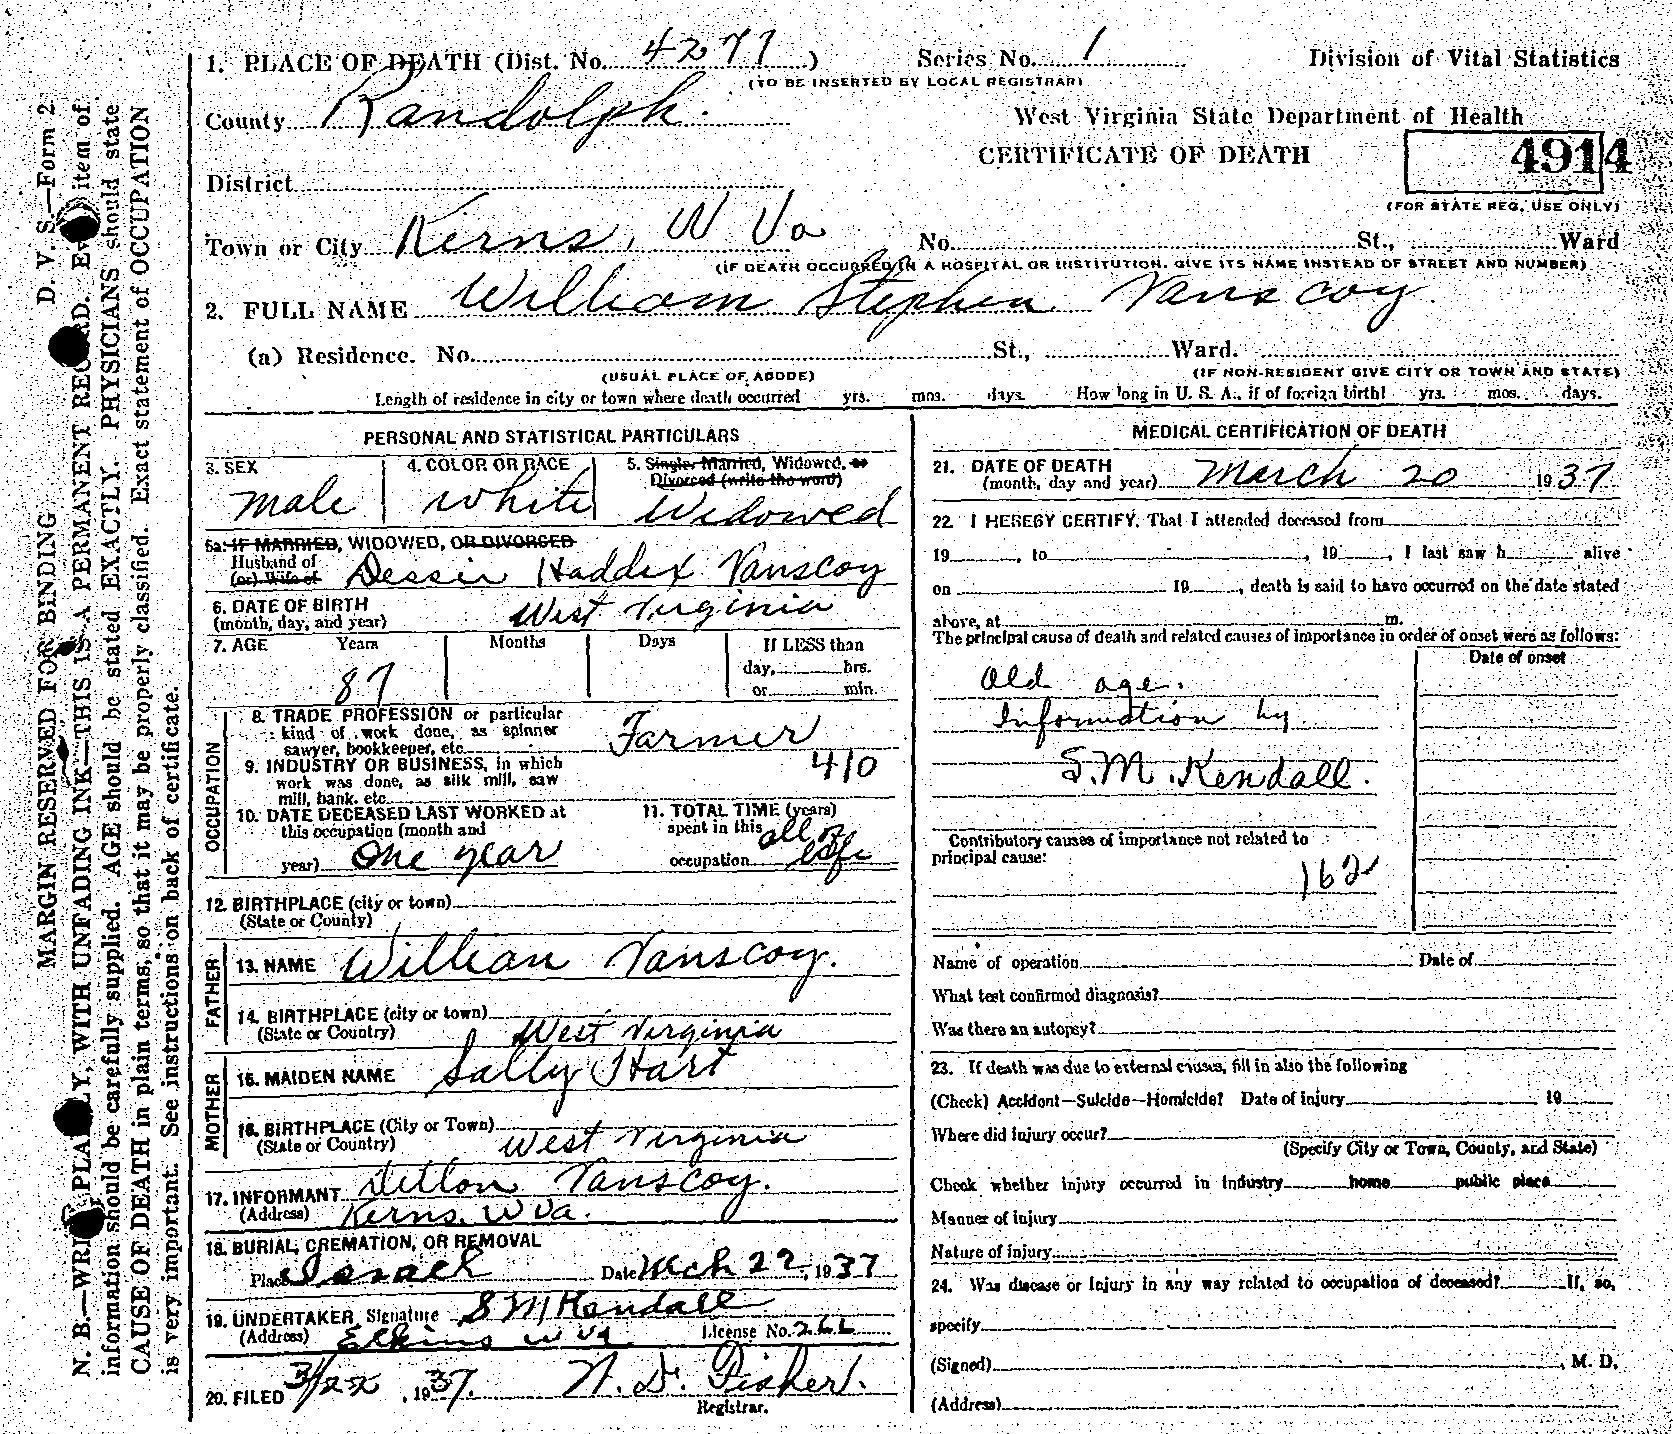 1. PLACE OF DEATH (Dist. No. 4271 ) Series No. 1 Division of Vital Statistics
(TO BE INSERTED BY LOCAL REGISTRAR)
County Randolph. West Virginia State Department of Health
CERTIFICATE OF DEATH 4914
District
(FOR STATE REG. USE ONLY)
Town or City Kerns, W Va No. St., Ward
(IF DEATH OCCURRED IN A HOSPITAL OR INSTITUTION, GIVE ITS NAME INSTEAD OF STREET AND NUMBER)
2. FULL NAME William Stephen Vanscoy.
(a) Residence. No. St., Ward.
(USUAL PLACE OF ABODE) (IF NON-RESIDENT GIVE CITY OR TOWN AND STATE)
Length of residence in city or town where death occurred yrs. mos. days. How long in U. S. A., if of foreign birth? yrs. mos. days.
PERSONAL AND STATISTICAL PARTICULARS
3. SEX 4. COLOR OR RACE 5. Single, Married, Widowed, or
Divorced (write the word)
male white Widowed
5a. IF MARRIED, WIDOWED, OR DIVORCED
Husband of
(or) Wife of Dessie Haddix Vanscoy
6. DATE OF BIRTH
(month, day, and year) West Virginia
7. AGE Years Months Days If LESS than
day, hrs.
or min.
87
OCCUPATION
8. TRADE PROFESSION or particular
kind of work done, as spinner
sawyer, bookkeeper, etc. Farmer
9. INDUSTRY OR BUSINESS, in which 410
work was done, as silk mill, saw
mill, bank, etc.
10. DATE DECEASED LAST WORKED at
this occupation (month and
year) One year
11. TOTAL TIME (years)
spent in this all of
occupation life
12. BIRTHPLACE (city or town)
(State or County)
FATHER
13. NAME William Vanscoy.
14. BIRTHPLACE (city or town)
(State or Country) West Virginia
MOTHER
15. MAIDEN NAME Sally Hart
16. BIRTHPLACE (City or Town)
(State or Country) West Virginia
17. INFORMANT Vanscoy.
(Address) Kerns. W Va.
18. BURIAL, CREMATION, OR REMOVAL
Place Israel Date Mch 22, 1937
19. UNDERTAKER, Signature S M Kendall
(Address) Elkins W Va License No.
20. FILED 3/22, 1937. N. D. Fisher.
Registrar.
MEDICAL CERTIFICATION OF DEATH
21. DATE OF DEATH
(month, day and year) March 20 1937
22. I HEREBY CERTIFY, That I attended deceased from
19 , to , 19 , I last saw h alive
on 19 , death is said to have occurred on the date stated
above, at m.
The principal cause of death and related causes of importance in order of onset were as follows:
Date of onset
Old age.
Information by
S.M. Kendall.
Contributory causes of importance not related to
principal cause:
162
Name of operation Date of
What test confirmed diagnosis?
Was there an autopsy?
23. If death was due to external causes, fill in also the following
(Check) Accident—Suicide—Homicide? Date of injury 19
Where did injury occur?
(Specify City or Town, County, and State)
Check whether injury occurred in industry home public place
Manner of injury
Nature of injury
24. Was disease or injury in any way related to occupation of deceased? If, so,
specify
(Signed) , M. D.
(Address)
MARGIN RESERVED FOR BINDING D. V. S.—Form 2
N. B.—WRITE PLAINLY, WITH UNFADING INK—THIS IS A PERMANENT RECORD. Every item of
information should be carefully supplied. AGE should be stated EXACTLY. PHYSICIANS should state
CAUSE OF DEATH in plain terms, so that it may be properly classified. Exact statement of OCCUPATION
is very important. See instructions on back of certificate.